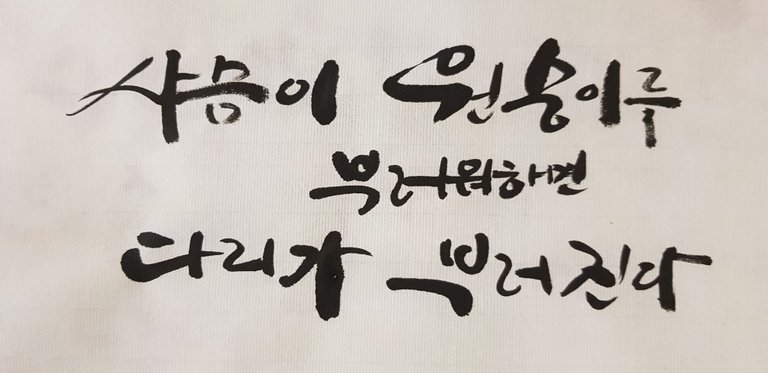 사슴이 원숭이를
부러워하면
다리가 부러진다